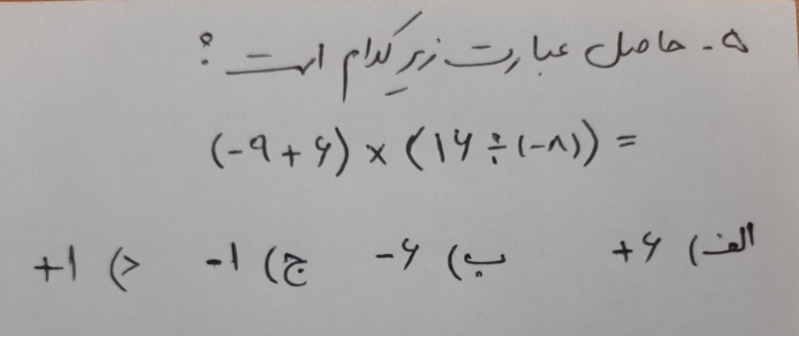 ۵- حاصل عبارت زیر کدام است؟
(-۹+۶)×(۱۶÷(-۸))=
الف) +۶ ب) -۶ ج) -۱ د) +۱